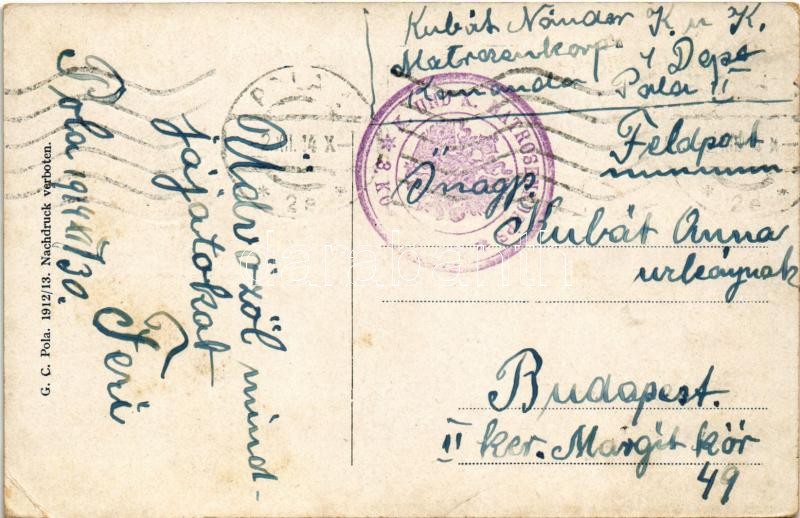 Kubát Nándor K. u. K.
Matrosenkorps
1 Depo
Komando Pola II
Feldpost
Önagy.
Kubát Anna
urleánynak
Budapest.
II ker. Margit kőr
49
Pola 1914 XI/30.
Üdvözöl mind-
jájatokat
Feri
G. C. Pola. 1912/13. Nachdruck verboten.
POLA
14 X
2a
UND K. MATROSEN
* 3. KO